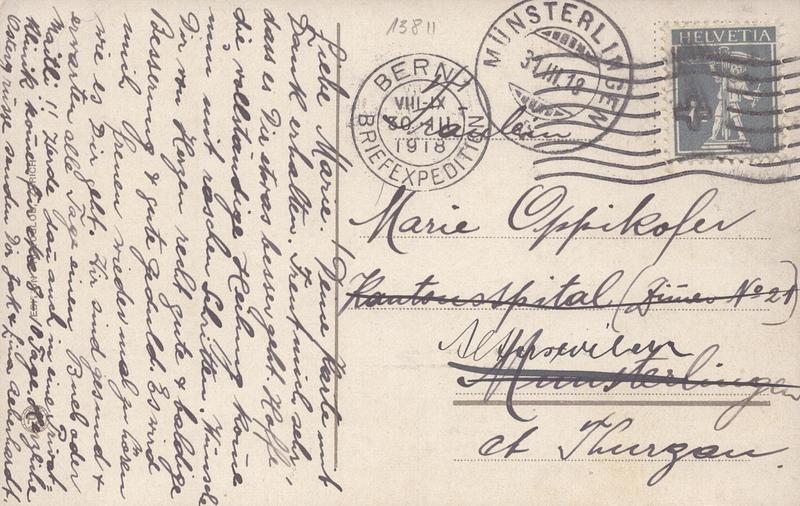 Liebe Marie! Deine Karte mit
Dank erhalten. Freut mich sehr,
dass es Dir etwas besser geht. Hoffe
die vollständige Heilung komme
nun mit raschen Schritten. Wünsche
Dir von Herzen recht gute & baldige
Besserung & gute Geduld. Es wird
mich freuen wieder mal zu hören
wie es Dir geht. Wir sind gesund &
erwarten alle Tage einen Bueb oder
Maitli!! Werde dann auch in eine Privat-
klinik
Ostergrüsse senden Dir Jak &
13811
BERN 1
VIII-IX
30.III
1918
BRIEFEXPEDITION
MÜNSTERLINGEN
31.III.18
HELVETIA
Fräulein
Marie Oppikofer
Kantonsspital (Zimmer No 21)
Münsterlingen
ct Thurgau.